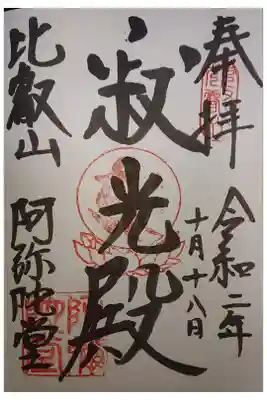 奉拝
令和二年
十月十八日
寂光殿
比叡山
阿弥陀堂